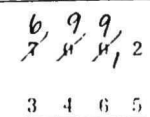 6 9 9
7 0 0 1 2
3 4 6 5